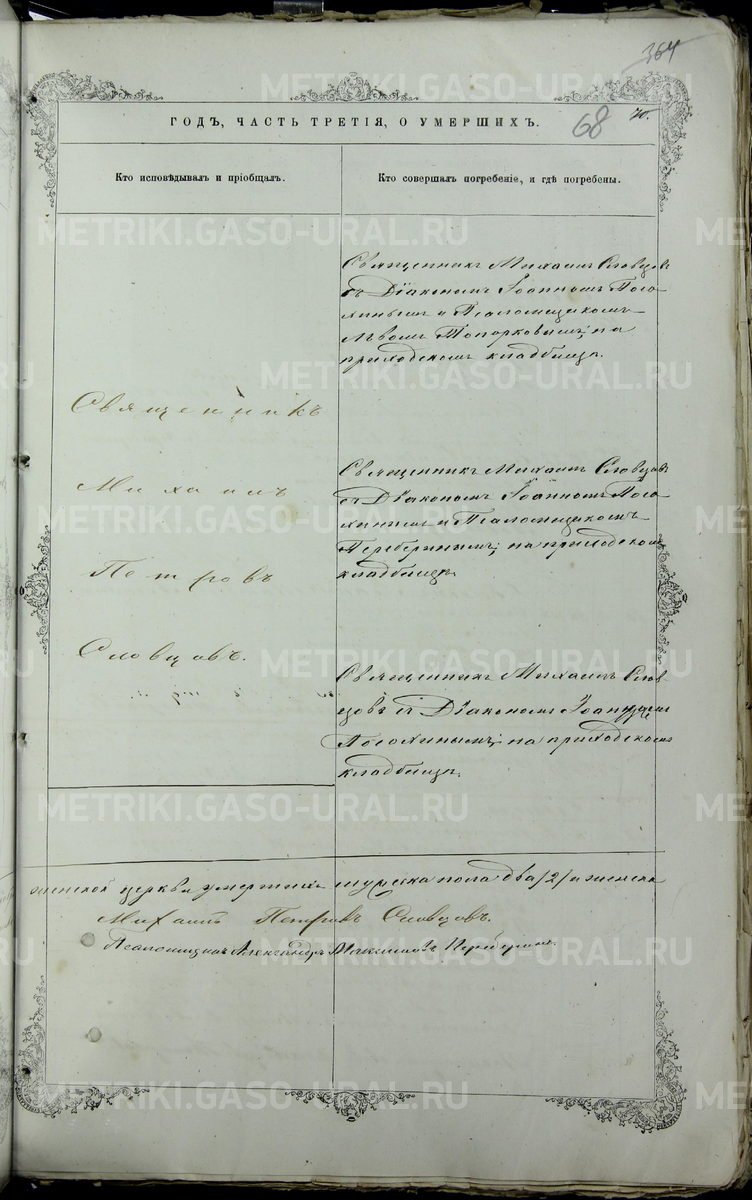 364
ГОДЪ, ЧАСТЬ ТРЕТІЯ, О УМЕРШИХЪ.
68
70.
Кто исповѣдывалъ и пріобщалъ.
Кто совершалъ погребеніе, и гдѣ погребены.
Священникъ
Михаилъ
Петровъ
Словцовъ.
Священникъ Михаилъ Словцовъ
съ Діакономъ Іоанномъ Пого-
хинымъ и Псаломщикомъ
Львомъ Топорковымъ; на
приходскомъ кладбищѣ.
Священникъ Михаилъ Словцовъ
съ Діакономъ Іоанномъ Пого-
хинымъ и Псаломщикомъ
на приходскомъ
кладбищѣ.
Священникъ Михаилъ Слов-
цовъ съ Діакономъ Іоанномъ
Погохинымъ; на приходскомъ
кладбищѣ.
церкви умершихъ мужска пола два /2/ и женска
Михаилъ Петровъ Словцовъ.
Псаломщикъ Александръ
METRIKI.GASO-URAL.RU